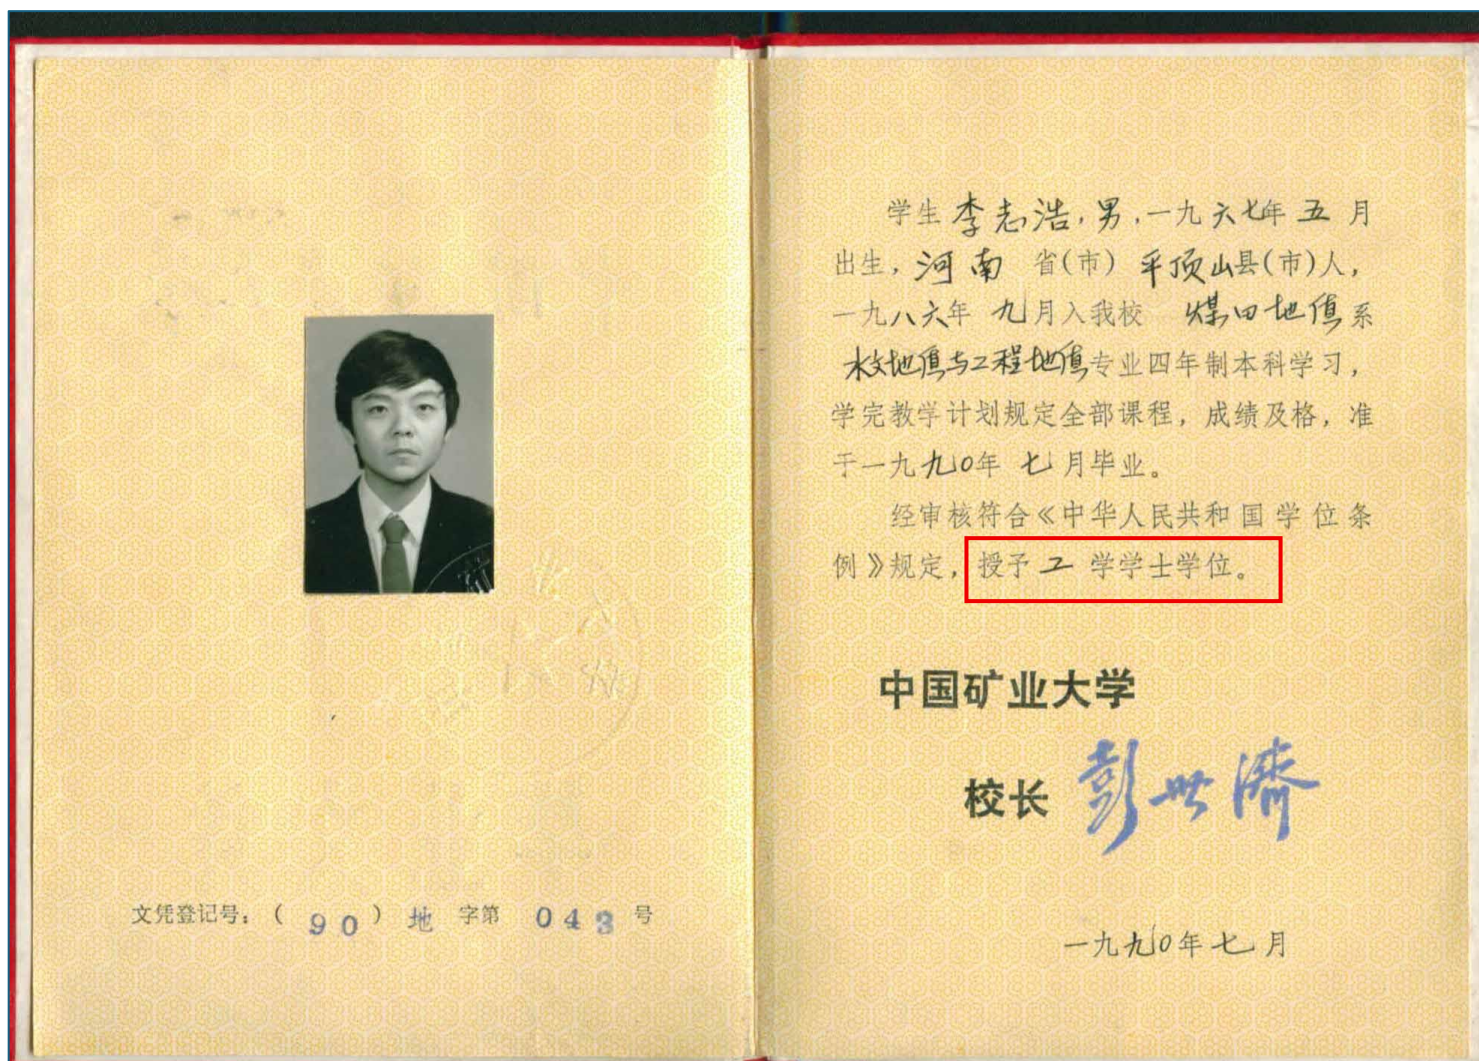 学生 李志浩,男,一九六七年 五 月
出生,河南 省(市) 平顶山县(市)人,
一九八六年 九月入我校 煤田地质系
水文地质与工程地质专业四年制本科学习,
学完教学计划规定全部课程,成绩及格,准
于一九九0年 七月毕业。
经审核符合《中华人民共和国学位条
例》规定,授予 工 学学士学位。
中国矿业大学
校长 彭世济
一九九0年七月
文凭登记号:( 90 ) 地 字第 043 号